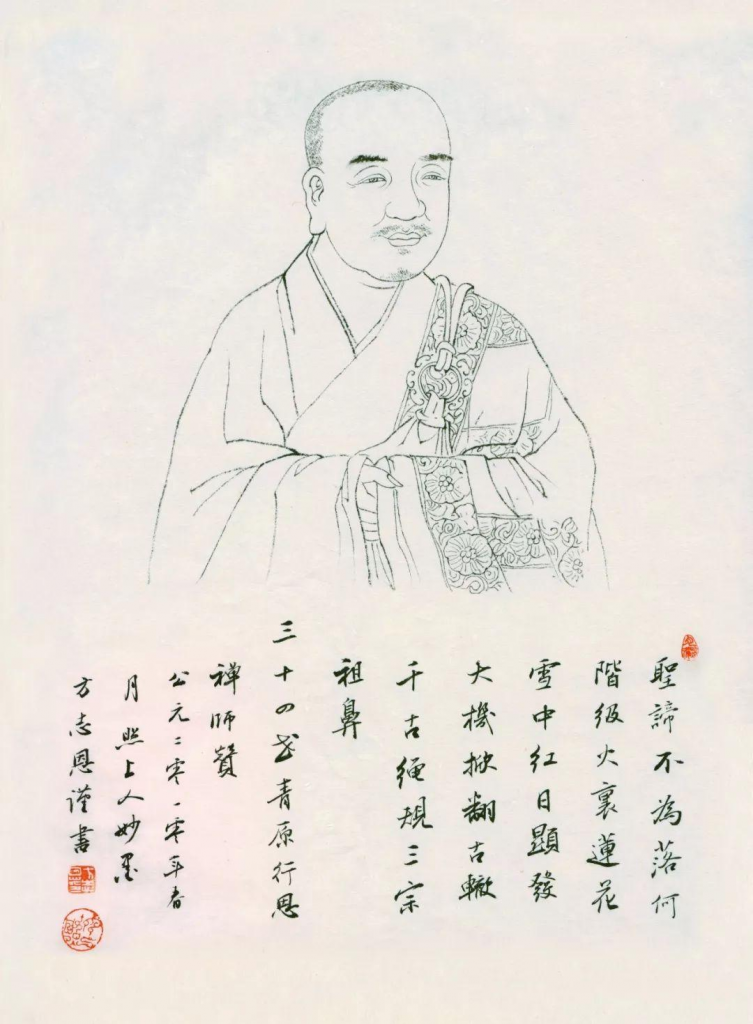 聖諦不為落何
階級火裏蓮花
雪中紅日顯發
大機掀翻古轍
千古繩規三宗
祖鼻
三十四世青原行思
禅师贊
公元二零一零年春
月照上人妙墨
方志恩谨書